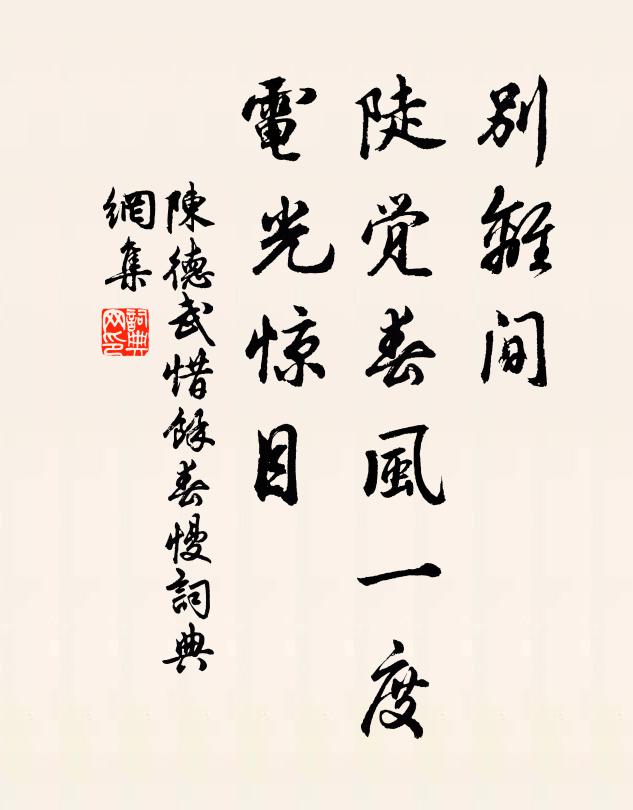 別離间
陡覺春風一度
電光惊目
陳德武惜餘春慢詞典
網集
詞典
网印